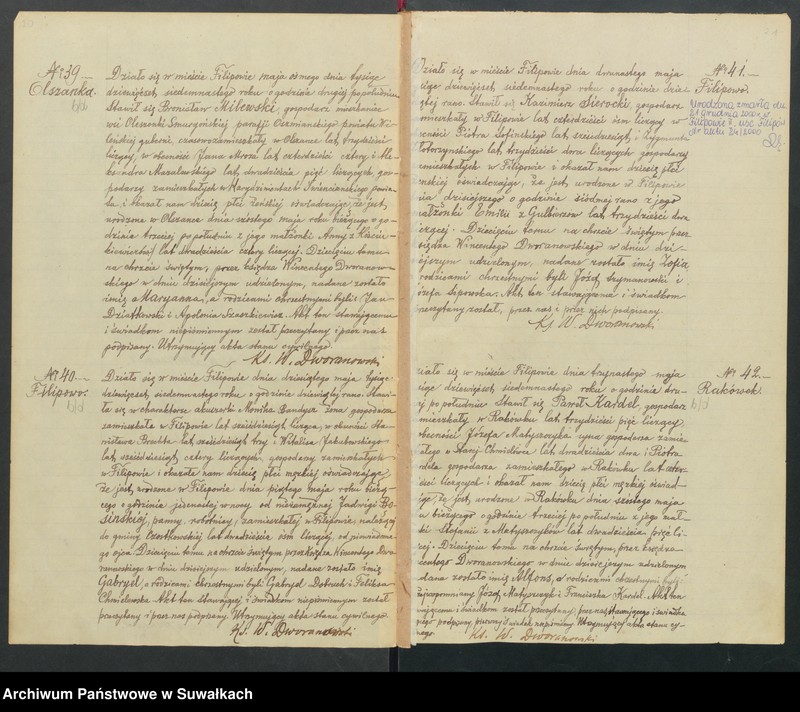 № 39.
Olszanka.
b/d
Działo się w mieście Filipowie maja ósmego dnia tysiąc
dziewięćset siedemnastego roku o godzinie drugiej popołudniu
Stawił się Bronisław Milewski, gospodarz mieszkaniec
wsi parafji Oszmiańskiego powiatu Wi-
leńskiej gubernii, czasowo zamieszkały w Olszance lat trzydzieści
liczący, w obecności Jana Mroza lat czterdzieści cztery i Ale-
ksandra lat dwadzieścia pięć liczących, gos-
podarzy zamieszkałych w powia-
tu, i okazał nam dziecię płci żeńskiej oświadczając że jest
urodzone w Olszance dnia szóstego maja roku bieżącego o go-
dzinie trzeciej po południu z jego małżonki Anny z
lat dwadzieścia cztery liczącej. Dziecięciu temu
na chrzcie świętym, przez księdza Wincentego Dworanow-
skiego w dniu dzisiejszym udzielonym, nadane zostało
imię Maryanna, a rodzicami chrzestnymi byli: Jan
Dziatkowski i Apolonia Szeszkiewicz. Akt ten stawającemu
i świadkom niepiśmiennym został przeczytany i przez nas
podpisany. Utrzymujący akta stanu cywilnego
Ks. W. Dworanowski
№ 40.
Filipowo.
b/d
Działo się w mieście Filipowie dnia dziesiątego maja tysiąc
dziewięćset siedemnastego roku o godzinie dziesiątej rano. Stawi-
ła się w charakterze akuszerki Monika Bandysz żona gospodarza
zamieszkała w Filipowie lat sześćdziesiąt licząca, w obecności Sta-
nisława lat sześćdziesiąt trzy i Wikalisa Jakubowskiego
lat sześćdziesiąt cztery liczących, gospodarzy zamieszkałych
w Filipowie i okazała nam dziecię płci męskiej oświadczając
że jest urodzone w Filipowie dnia piątego maja roku bieżą-
cego o godzinie jedenastej w nocy od niezamężnej Jadwigi Bo-
sińskiej, panny, robotnicy, zamieszkałej w Filipowie, należącej
do gminy lat dwadzieścia osiem liczącej, od niewiadome-
go ojca. Dziecięciu temu na chrzcie świętym przez Księdza Wincentego Dwo-
ranowskiego w dniu dzisiejszym udzielonym, nadane zostało imię
Gabryel, a rodzicami chrzestnymi byli Gabryel Dobruch i Feliksa
Chmielewska. Akt ten stawającej i świadkom niepiśmiennym został
przeczytany i przez nas podpisany. Utrzymujący akta stanu cywilnego
Ks. W. Dworanowski
№ 41.
Filipowo.
Urodzona zmarła dn.
21 grudnia 2000r. w
Filipowie 3. USC Filipów
nr aktu 24/2000
Działo się w mieście Filipowie dnia dwunastego maja
tysiąc dziewięćset siedemnastego roku o godzinie dzie-
siątej rano. Stawił się Kazimierz Sierocki, gospodarz
zamieszkały w Filipowie lat czterdzieści osiem liczący w
obecności Piotra Sofińskiego lat sześćdziesiąt i Zygmunta
lat trzydzieści dwa liczących gospodarzy
zamieszkałych w Filipowie i okazał nam dziecię płci
żeńskiej oświadczając, że jest urodzone w Filipowie
dnia dzisiejszego o godzinie siódmej rano z jego
małżonki Emilii z lat trzydzieści dwa
liczącej. Dziecięciu temu na chrzcie świętym przez
księdza Wincentego Dworanowskiego w dniu dzi-
siejszym udzielonym, nadane zostało imię Zofia
rodzicami chrzestnymi byli Józef Szymanowski i
Józefa Lipowska. Akt ten stawającemu i świadkom
przeczytany został, przez nas i przez nich podpisany.
Ks W. Dworanowski
№ 42.
Rakówek.
b/d
Działo się w mieście Filipowie dnia trzynastego maja
tysiąc dziewięćset siedemnastego roku o godzinie dru-
giej po południu Stawił się Paweł Kardel, gospodarz
zamieszkały w Rakówku lat trzydzieści pięć liczący,
w obecności Józefa Matyszczyka syna gospodarza zamie-
szkałego w Starej-Chmielówce lat dwadzieścia dwa i Piotra
Kardela gospodarza zamieszkałego w Rakówku lat
liczących i okazał nam dziecię płci męskiej oświad-
czając że jest urodzone w Rakówku dnia szóstego maja
roku bieżącego o godzinie trzeciej po południu z jego mał-
żonki Stefanii z Matyszczyków lat dwadzieścia pięć li-
czącej. Dziecięciu temu na chrzcie świętym, przez księdza
Wincentego Dworanowskiego w dniu dzisiejszym udzielonym
nadane zostało imię Alfons, a rodzicami chrzestnymi byli:
wyżejwspomniany Józef Matyszczyk i Franciszka Kardel. Akt ten
stawającemu i świadkom został przeczytany przez nas stawającego i świadka
podpisany, pierwszy świadek niepiśmienny. Utrzymujący akta stanu cy-
wilnego. Ks. W. Dworanowski
Archiwum Państwowe w Suwałkach